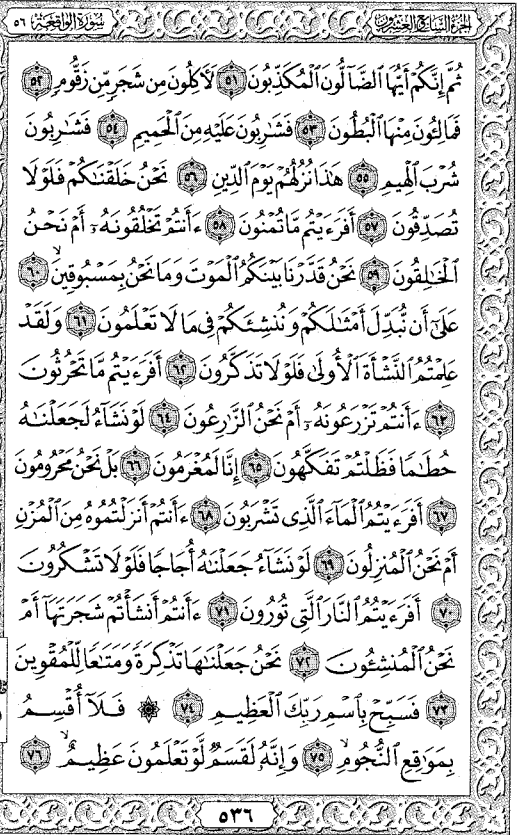 الجزء السابع والعشرون سورة الواقعة ٥٦
ثُمَّ إِنَّكُمْ أَيُّهَا ٱلضَّآلُّونَ ٱلْمُكَذِّبُونَ ٥١ لَأَكِلُونَ مِن شَجَرٍ مِّن زَقُّومٍ ٥٢
فَمَالِـُٔونَ مِنْهَا ٱلْبُطُونَ ٥٣ فَشَٰرِبُونَ عَلَيْهِ مِنَ ٱلْحَمِيمِ ٥٤ فَشَٰرِبُونَ
شُرْبَ ٱلْهِيمِ ٥٥ هَٰذَا نُزُلُهُمْ يَوْمَ ٱلدِّينِ ٥٦ نَحْنُ خَلَقْنَٰكُمْ فَلَوْلَا
تُصَدِّقُونَ ٥٧ أَفَرَءَيْتُم مَّا تُمْنُونَ ٥٨ ءَأَنتُمْ تَخْلُقُونَهُۥٓ أَمْ نَحْنُ
ٱلْخَٰلِقُونَ ٥٩ نَحْنُ قَدَّرْنَا بَيْنَكُمُ ٱلْمَوْتَ وَمَا نَحْنُ بِمَسْبُوقِينَ ٦٠
عَلَىٰٓ أَن نُّبَدِّلَ أَمْثَٰلَكُمْ وَنُنشِئَكُمْ فِى مَا لَا تَعْلَمُونَ ٦١ وَلَقَدْ
عَلِمْتُمُ ٱلنَّشْأَةَ ٱلْأُولَىٰ فَلَوْلَا تَذَكَّرُونَ ٦٢ أَفَرَءَيْتُم مَّا تَحْرُثُونَ
٦٣ ءَأَنتُمْ تَزْرَعُونَهُۥٓ أَمْ نَحْنُ ٱلزَّٰرِعُونَ ٦٤ لَوْ نَشَآءُ لَجَعَلْنَٰهُ
حُطَٰمًا فَظَلْتُمْ تَفَكَّهُونَ ٦٥ إِنَّا لَمُغْرَمُونَ ٦٦ بَلْ نَحْنُ مَحْرُومُونَ
٦٧ أَفَرَءَيْتُمُ ٱلْمَآءَ ٱلَّذِى تَشْرَبُونَ ٦٨ ءَأَنتُمْ أَنزَلْتُمُوهُ مِنَ ٱلْمُزْنِ
أَمْ نَحْنُ ٱلْمُنزِلُونَ ٦٩ لَوْ نَشَآءُ جَعَلْنَٰهُ أُجَاجًا فَلَوْلَا تَشْكُرُونَ
٧٠ أَفَرَءَيْتُمُ ٱلنَّارَ ٱلَّتِى تُورُونَ ٧١ ءَأَنتُمْ أَنشَأْتُمْ شَجَرَتَهَآ أَمْ
نَحْنُ ٱلْمُنشِـُٔونَ ٧٢ نَحْنُ جَعَلْنَٰهَا تَذْكِرَةً وَمَتَٰعًا لِّلْمُقْوِينَ
٧٣ فَسَبِّحْ بِٱسْمِ رَبِّكَ ٱلْعَظِيمِ ٧٤ ۞ فَلَآ أُقْسِمُ
بِمَوَٰقِعِ ٱلنُّجُومِ ٧٥ وَإِنَّهُۥ لَقَسَمٌ لَّوْ تَعْلَمُونَ عَظِيمٌ ٧٦
٥٣٦